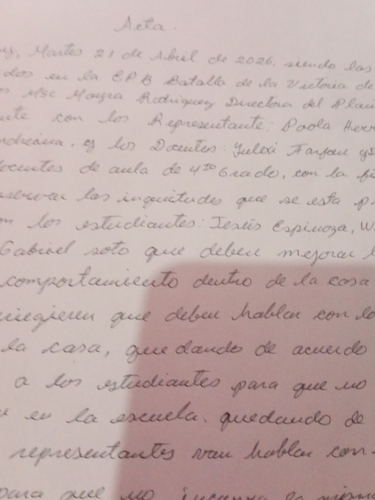 Acta.
Martes 21 de Abril de 2026, siendo las
en la EPB Batalla de la Victoria de
MSc Mayra Rodriguez Directora del Plan
con los Representante: Paola
y los Docentes: Yulexi Farfan
docentes de aula de 4to Grado, con la
las inquietudes que se esta
los estudiantes: Jesús Espinoza, W
Gabriel soto que deben mejorar
comportamiento dentro de la casa
que deben hablar con lo
la casa, quedando de acuerdo
a los estudiantes para que no
en la escuela. quedando de
representantes van hablar con
para que no